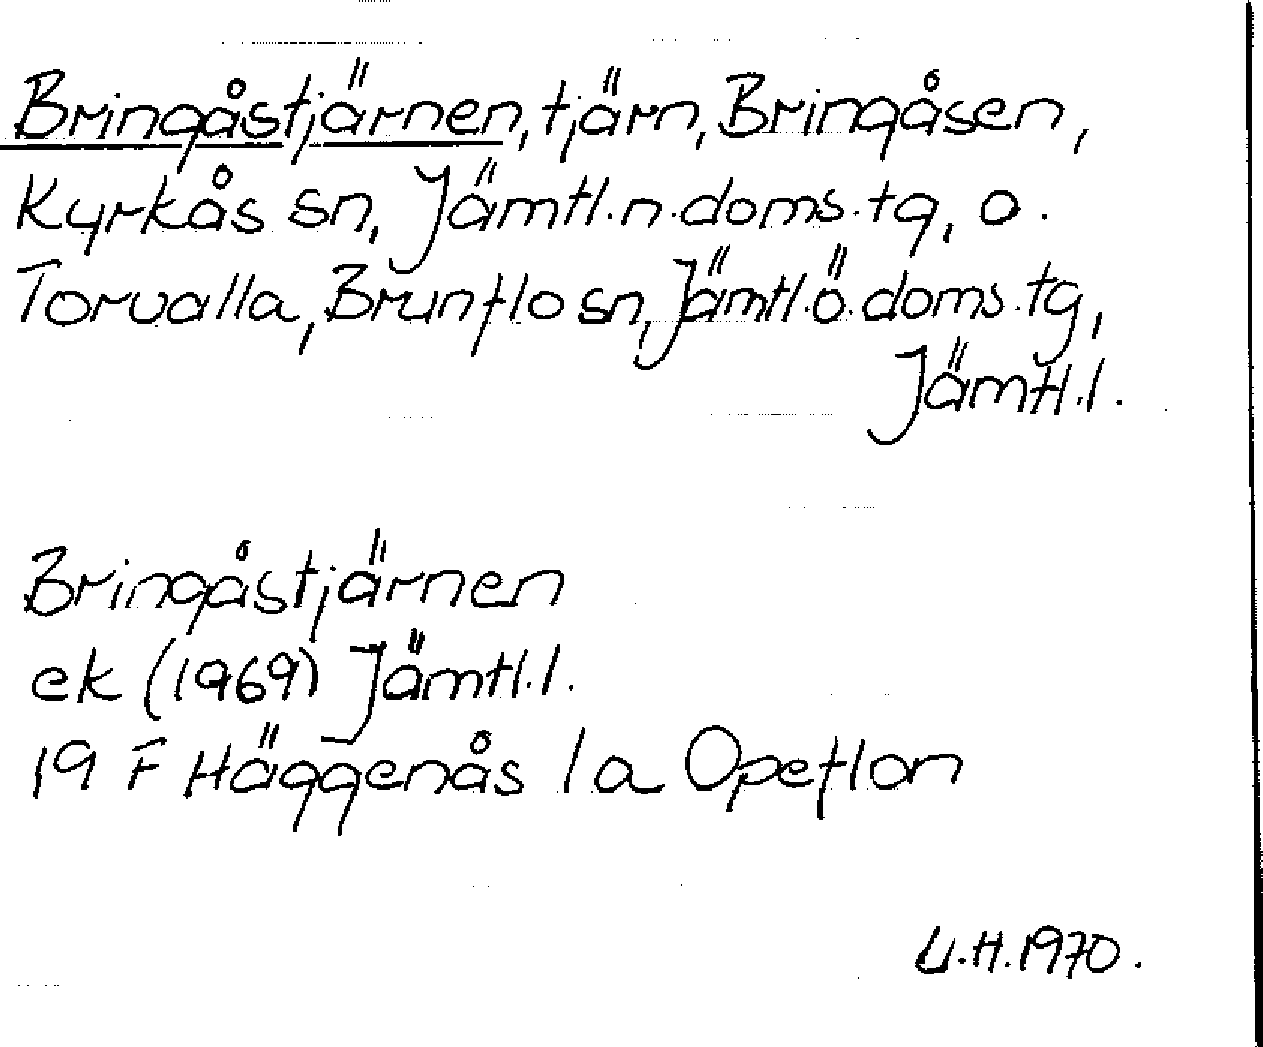 Bringåstjärnen, tjärn, Bringåsen,
Kyrkås sn, Jämtl.n.doms.tg, o.
Torvalla, Brunflo sn, Jämtl.ö.doms.tg,
Jämtl.l.
Bringåstjärnen
ek (1969) Jämtl.l.
19 F Häggenås 1 a Opeflon
U.H.1970.